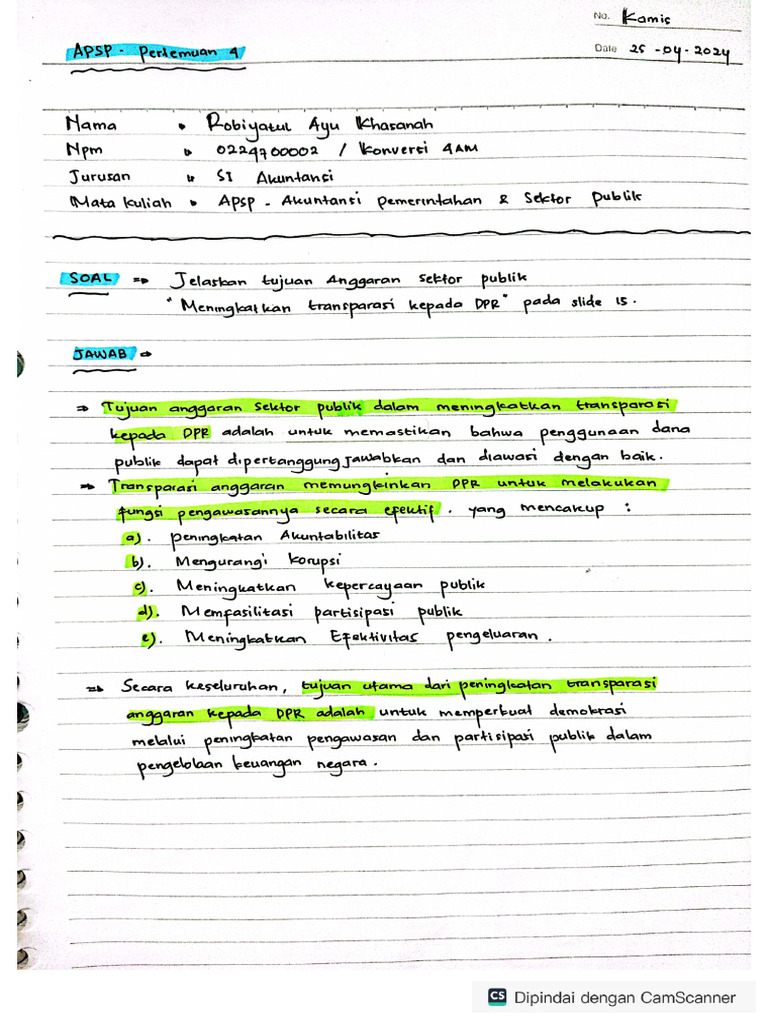 No. Kamis
APSP - Pertemuan 4
Date 25 - 04 - 2024
Nama : Robiyatul Ayu Khasanah
Npm : 0224700002 / Konversi 4AM
Jurusan : S1 Akuntansi
Mata kuliah : APSP - Akuntansi pemerintahan & Sektor Publik
SOAL => Jelaskan tujuan Anggaran sektor publik
"Meningkatkan transparasi kepada DPR" pada slide 15.
JAWAB =>
=> Tujuan anggaran sektor publik dalam meningkatkan transparasi
kepada DPR adalah untuk memastikan bahwa penggunaan dana
publik dapat dipertanggung jawabkan dan diawasi dengan baik.
=> Transparasi anggaran memungkinkan DPR untuk melakukan
fungsi pengawasannya secara efektif. yang mencakup :
a). peningkatan Akuntabilitas
b). Mengurangi korupsi
c). Meningkatkan kepercayaan publik
d). Memfasilitasi partisipasi publik
e). Meningkatkan Efektivitas pengeluaran.
=> Secara keseluruhan, tujuan utama dari peningkatan transparasi
anggaran kepada DPR adalah untuk memperkuat demokrasi
melalui peningkatan pengawasan dan partisipasi publik dalam
pengelolaan keuangan negara.
CS Dipindai dengan CamScanner